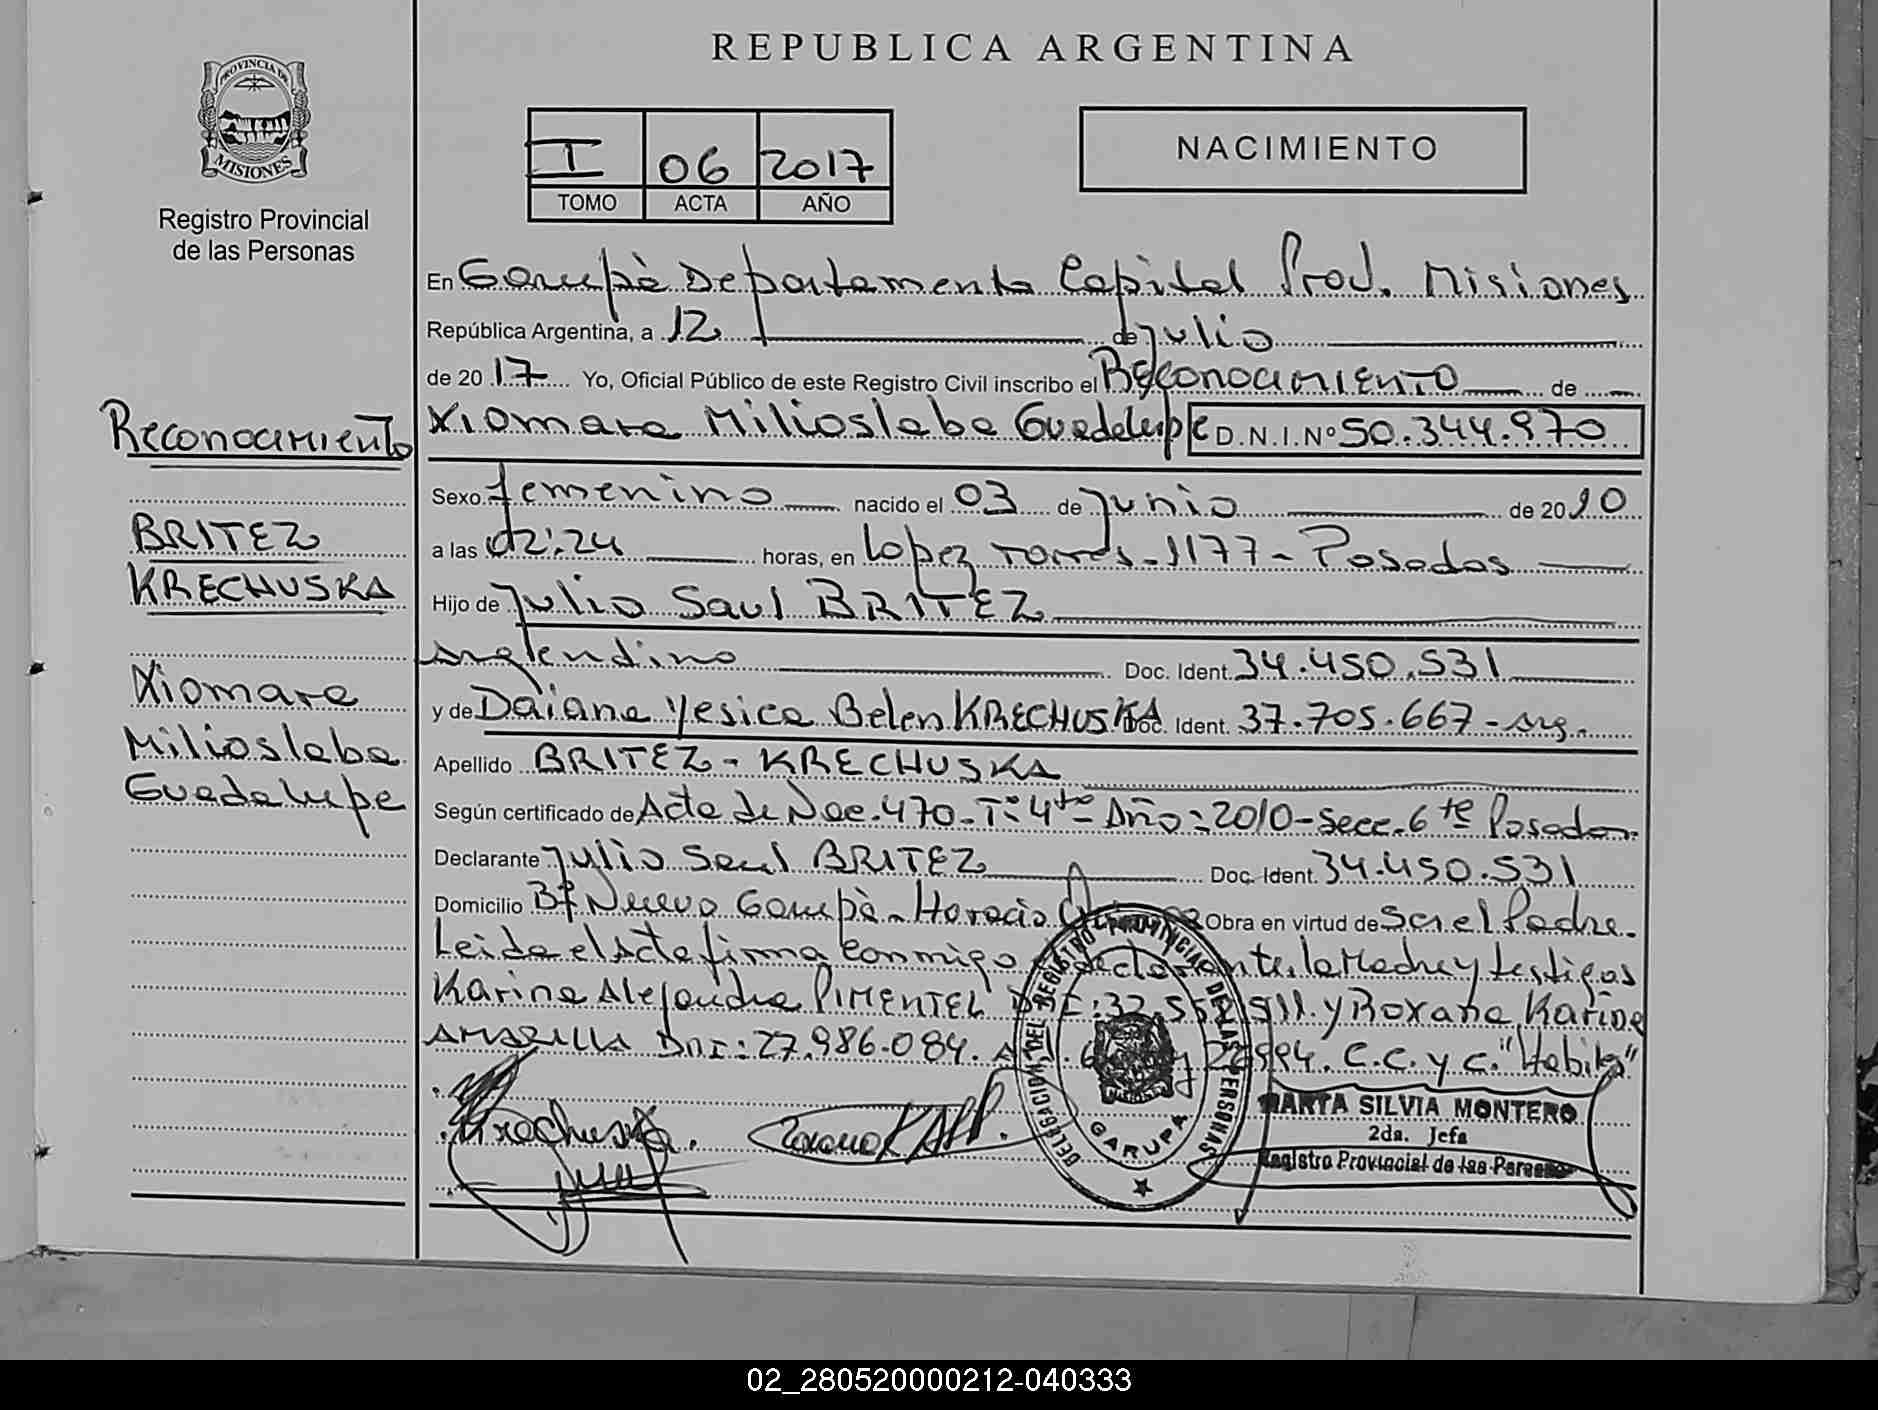 REPUBLICA ARGENTINA
PROVINCIA DE
MISIONES
Registro Provincial
de las Personas
I 06 2017
TOMO ACTA AÑO
NACIMIENTO
En Garupà Departamento Capital Prov. Misiones
República Argentina, a 12 de julio
de 2017 Yo, Oficial Público de este Registro Civil inscribo el Reconocimiento de
Xiomara Milioslaba Guadalupe D.N.I.Nº 50.344.970
Sexo femenino nacido el 03 de junio de 2010
a las 02:24 horas, en Lopez Torres-1177-Posadas
Hijo de Julio Saul BRITEZ
argentino Doc. Ident. 34.450.531
y de Daiana Yesica Belen KRECHUSKA Doc. Ident. 37.705.667-arg.
Apellido BRITEZ - KRECHUSKA
Según certificado de Acta de Nac.470-Tº:4to-Año:2010-Secc.6ta Posadas
Declarante Julio Saul BRITEZ Doc. Ident. 34.450.531
Domicilio Bº Nuevo Garupà-Horacio Obra en virtud de Ser el Padre.
Leida el Acta firma conmigo declarante, la Madre y testigos
Karina Alejandra PIMENTEL y Roxana Karina
AMARILLA DNI:27.986.084. C.C. y C. "Habita"
Reconocimiento
BRITEZ
KRECHUSKA
Xiomara
Milioslaba
Guadalupe
Krechuska
DELEGACION DEL REGISTRO PROVINCIAL DE LAS PERSONAS
GARUPA
MARTA SILVIA MONTERO
2da. Jefa
Registro Provincial de las Personas
02_280520000212-040333